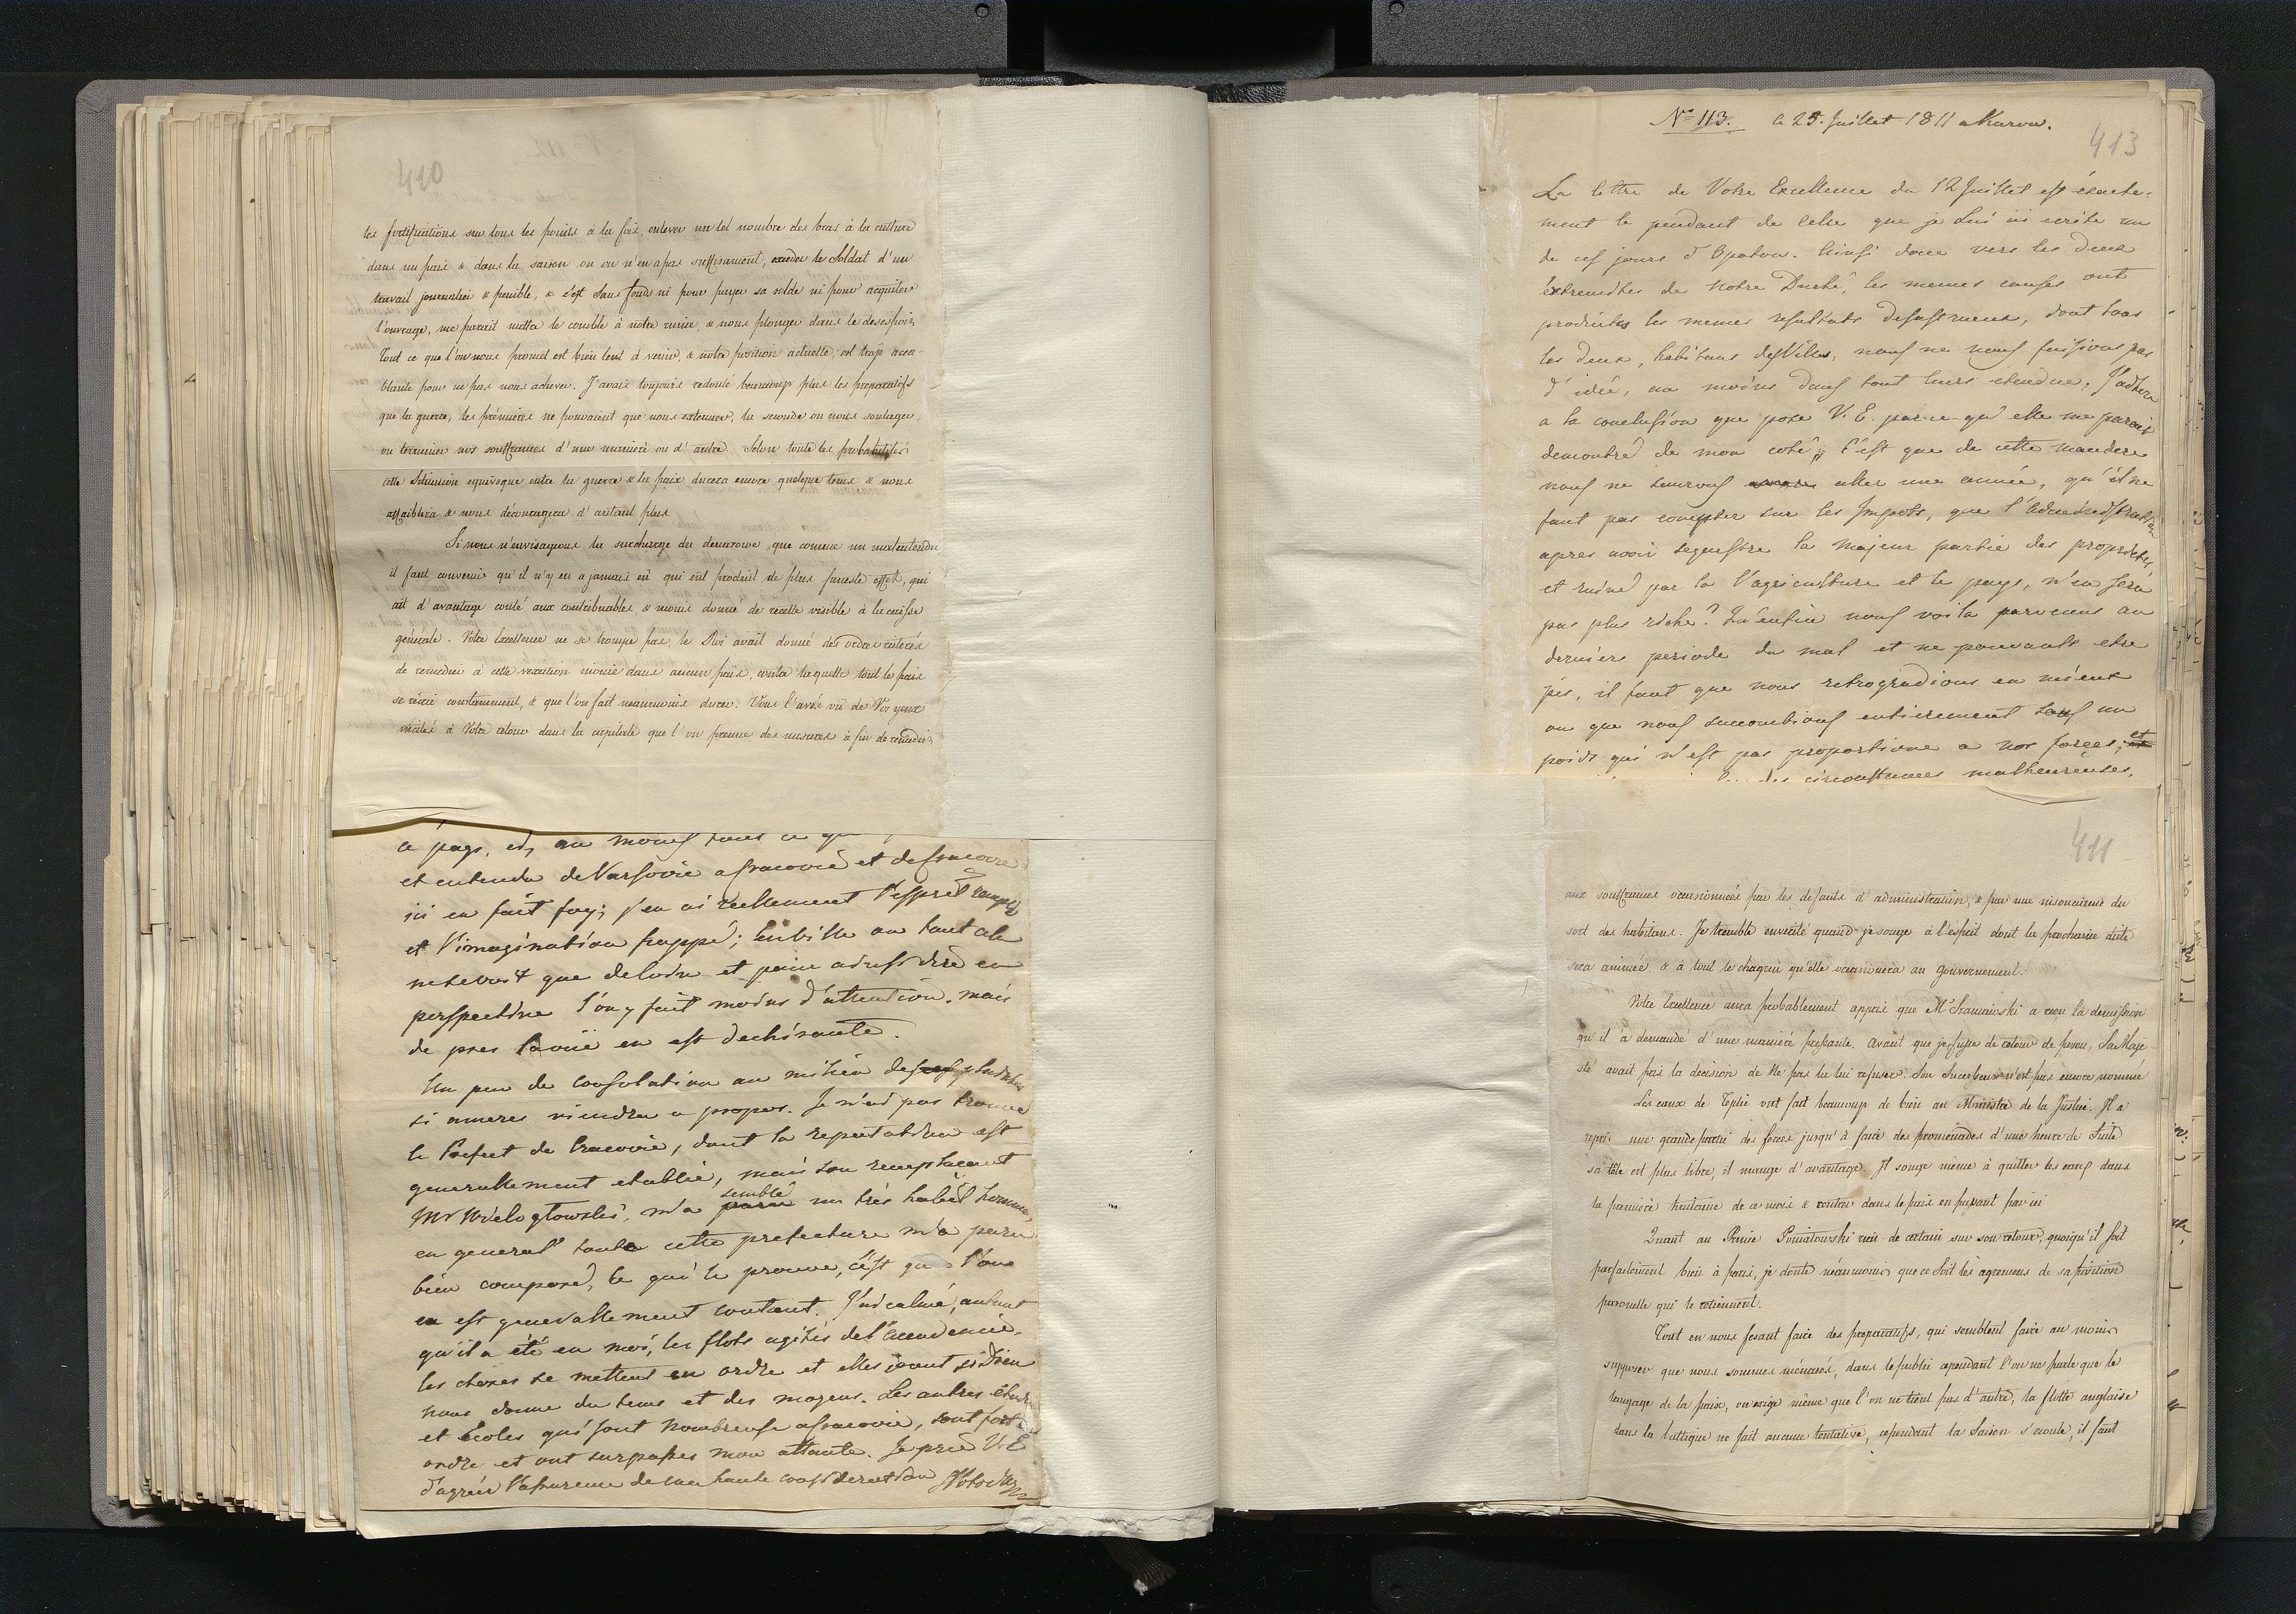 410
les fortifications sur tous les points à la fois, enlever un tel nombre des bras à la culture
dans un païs & dans la saison ou on n'en a pas suffisament, exceder le Soldat d'un
travail journalier & penible, & c'est sans fonds ni pour payer sa solde ni pour acquiter
l'ouvrage, me parait mettre le comble à notre ruine, & nous plonger dans le desespoir
Tout ce que l'on nous promet est bien lent à venir, & notre position actuelle, est trop acca-
blante pour ne pas nous achever. J'avais toujours redouté beaucoup plus les preparatifs
que la guerre, les prémières ne pouvaient que nous extenuer, la seconde ou nous soulager,
ou terminer nos souffrances d'une manière ou d'autre. Selon toute les probabilités
cette Situation equivoque entre la guerre & la paix durera encore quelque tems & nous
affaiblira & nous découragera d'autant plus
Si nous n'envisageons la surcharge du que comme un malentendu
il faut convenir qu'il n'y en a jamais eü qui eut produit de plus funeste effet, qui
ait d'avantage couté aux contribuables, & moins donné de recette visible à la caisse
generale. Votre Excellence ne se trompe pas, le Roi avait donné des ordres réiterés
de remedier à cette vexation inouie dans aucun païs, contre laquelle tout le païs
se récrie constamment, & que l'on fait néanmoins durer. Vous l'avés vû de Vos yeux
à Votre retour dans la capitale que l'on prenne des mesures à fin de remedier
ce pays, et, au moins tout ce
et entendu de Varsovie a Cracovie et de Cracovie
ici en fait foy; j'en ai réellement l'esprit
et l'imagination frappé;
que de loin et pour ainsi dire en
perspective l'on y fait moins d'attention, mais
de pres la vüe en est dechirante.
Un peu de consolation au milieu des
si ameres viendra a propos. Je n'ai pas trouvé
le Prefect de Cracovie, dont la reputation est
generallement etablie, mais son remplaçant
Mr Wielogłowski, m'a semblé un très habil homme,
en general toute cette prefecture m'a paru
bien composé, ce qui le prouve, c'est que l'on
en est generallement contant. J'ai calmé, autant
qu'il a été en moi, les flots agités de l'accademie,
les choses se mettent en ordre et elles iront si Dieu
nous donne du tems et des moyens. Les autres
et Ecoles qui sont nombreuse a Cracovie, sont fort
ordre et ont surpassés mon attante. Je prie V.E.
d'agréer l'assurence de ma haute consideration
Nº 113. le 25. Juillet 1811 a Kurow.
413
La lettre de Votre Excellence du 12 Juillet est exacte-
ment le pendant de celle que je Lui ai ecrite un
de ces jours d'Opatow. Ainsi donc vers les deux
extremites de Notre Duché, les memes causes ont
produites les memes resultats desastreux, dont tous
les deux, habitans des Villes, nous ne nous faisions pas
d'idée, au moins dans tout leurs etendue; J'adhere
a la conclusion que pose V.E. parce-qu'elle me parait
demontré de mon coté; C'est que de cette maniere
nous ne saurons aller une année, qu'il ne
faut pas compter sur les Impots, que l'administration
apres avoir sequestre la majeur partie des proprietés
et ruiné par la l'agriculture et le pays, n'en sera
pas plus riche? Qu'enfin nous voila parvenus au
dernière periode du mal et ne pouvants etre
pis, il faut que nous retrogradions en mieux
ou que nous succombions entierement sous un
poids qui n'est pas proportione a nos forces; et
circonstances malheureuses,
411
aux souffrances occasionnées par les defauts d'administration, & par une insouciance du
sort des habitans. Je tremble en verité quand je songe à l'esprit dont la prochaine diète
sera animée, & à tout le chagrin qu'elle occasionera au Gouvernement.
Votre Excellence aura probablement appris que Mr Szaniawski a reçu la demission
qu'il a demandé d'une manière pressante. Avant que je fusse de retour de Sa Maje-
sté avait pris la décision de ne pas la lui refuser. Son Successeur n'est pas encore nommé
Les eaux de Tœplie ont fait beaucoup de bien au Ministre de la Justice. Il a
repris une grande partie des forces jusqu'à faire des promenades d'une heure de Suite
sa tête est plus libre, il mange d'avantage. Il songe même à quitter les eaux dans
la première huitaine de ce mois & rentrer dans le païs en passant par ici
Quant au Prince Poniatowski rien de certain sur son retour, quoiqu'il soit
parfaitement bien à paris, je doute néanmoins que ce soit les agremens de sa position
personelle qui le retiennent.
Tout en nous fesant faire des preparatifs, qui semblent faire au moins
supposer que nous sommes ménacés, dans le public cependant l'on ne parle que le
langage de la paix, on exige même que l'on ne tient pas d'autre, la flotte anglaise
dans la baltique ne fait aucune tentative, cependant la Saison s'ecoule, il faut